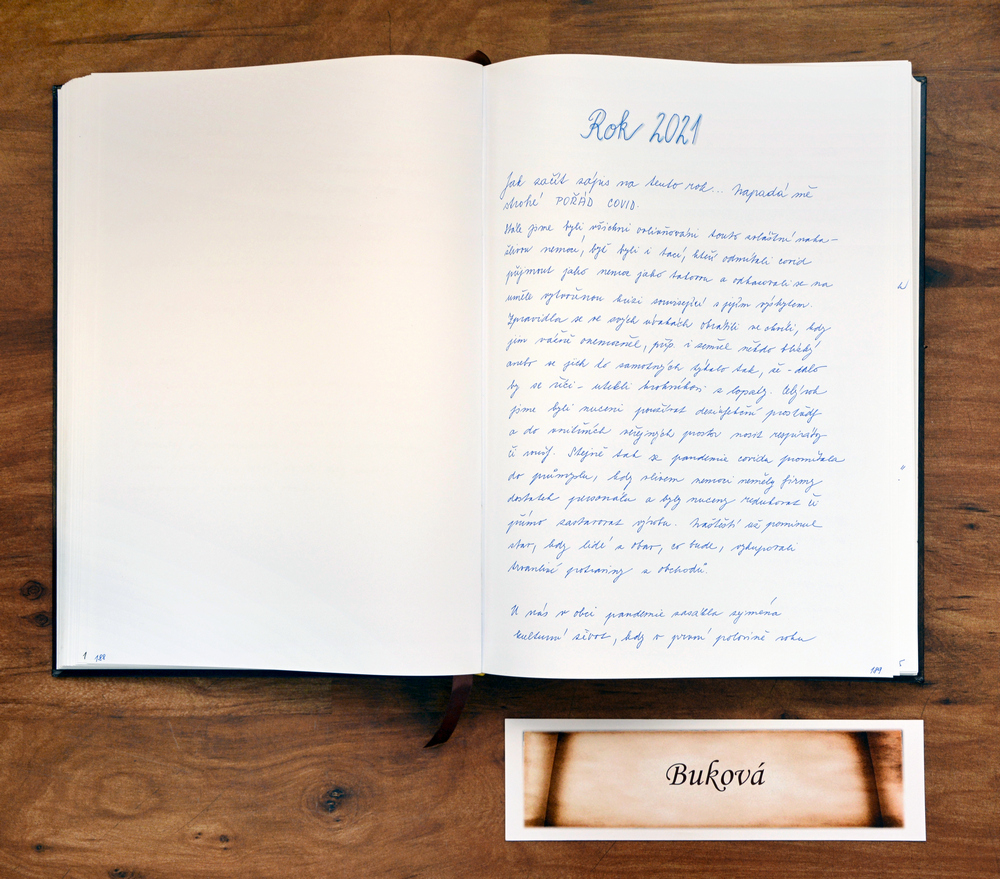 Rok 2021
Jak začít zápis na tento rok... Napadá mě
strohé POŘÁD COVID.
Stále jsme byli všichni ovlivňováni touto zvláštní naka-
žlivou nemocí, byť byli i tací, kteří odmítali covid
přijmout jako nemoc jako takovou a odkazovali se na
uměle vytvořenou krizi související s jejím výskytem.
Zpravidla se ve svých úvahách obrátili ve chvíli, kdy
jim vážně onemocněl, příp. i zemřel někdo blízký
anebo se jich to samotných týkalo tak, že - dalo
by se říci - utekli hrobníkovi z lopaty. Celý rok
jsme byli nuceni používat dezinfekční prostředky
a do vnitřních veřejných prostor nosit respirátory
či roušky. Stejně tak se pandemie covidu promítala
do průmyslu, kdy vlivem nemoci neměly firmy
dostatek personálu a byly nuceny redukovat či
přímo zastavovat výrobu. Naštěstí už pominul
stav, kdy lidé z obav, co bude, vykupovali
trvanlivé potraviny z obchodů.
U nás v obci pandemie zasáhla zejména
kulturní život, kdy v první polovině roku
1 188
189 5
Buková